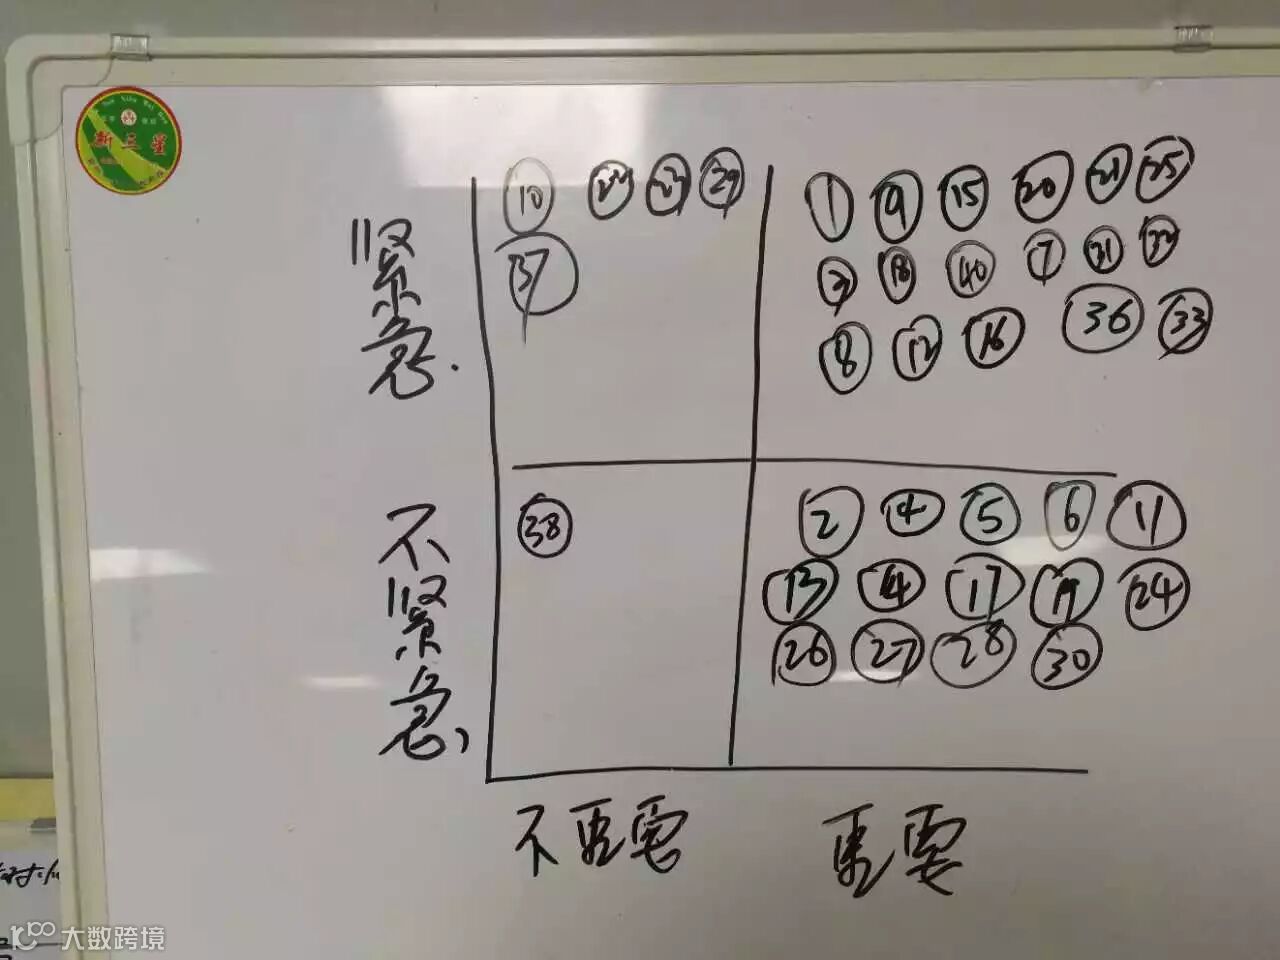 新三星
紧急
10 22 23 29
37
1 9 15 20 21 25
3 18 40 7 31 32
8 12 16 36 33
不紧急
38
2 4 5 6 11
13 14 17 19 24
26 27 28 30
不重要
重要
大数跨境